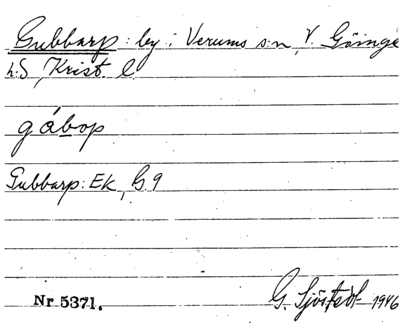 Gubbarp: by i Verums s:n, V. Göinge
h:d, Krist. l
gábop
Gubbarp: Ek, G 9
G. Sjöstedt 1946
Nr 5371.